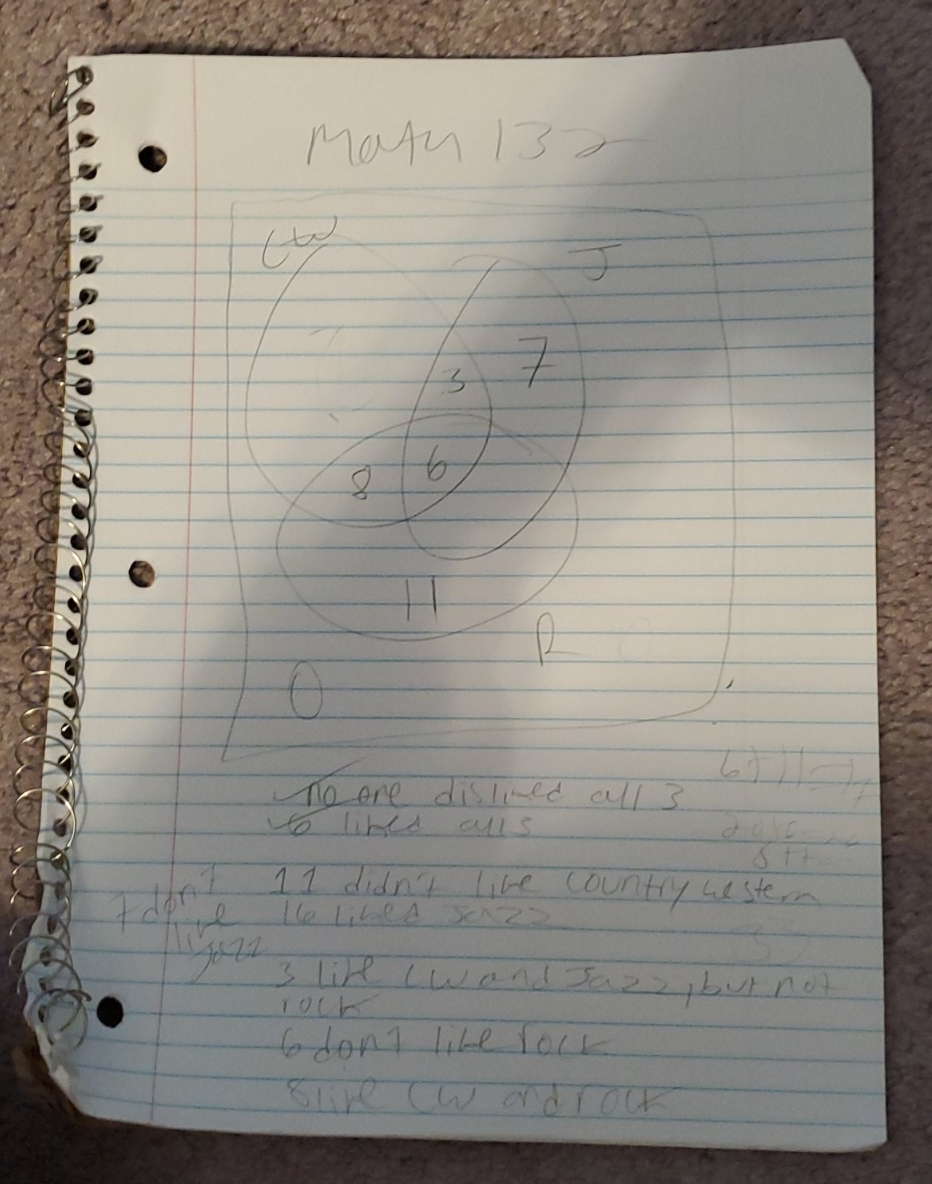 Math 132
CW
J
3
7
8
6
11
R
0
no one disliked all 3
6 liked all 3
6+11=17
11 didn't like country western
16 liked Jazz
7 don't
like
Jazz
3 like CW and Jazz, but not
rock
6 don't like rock
8 like CW and rock